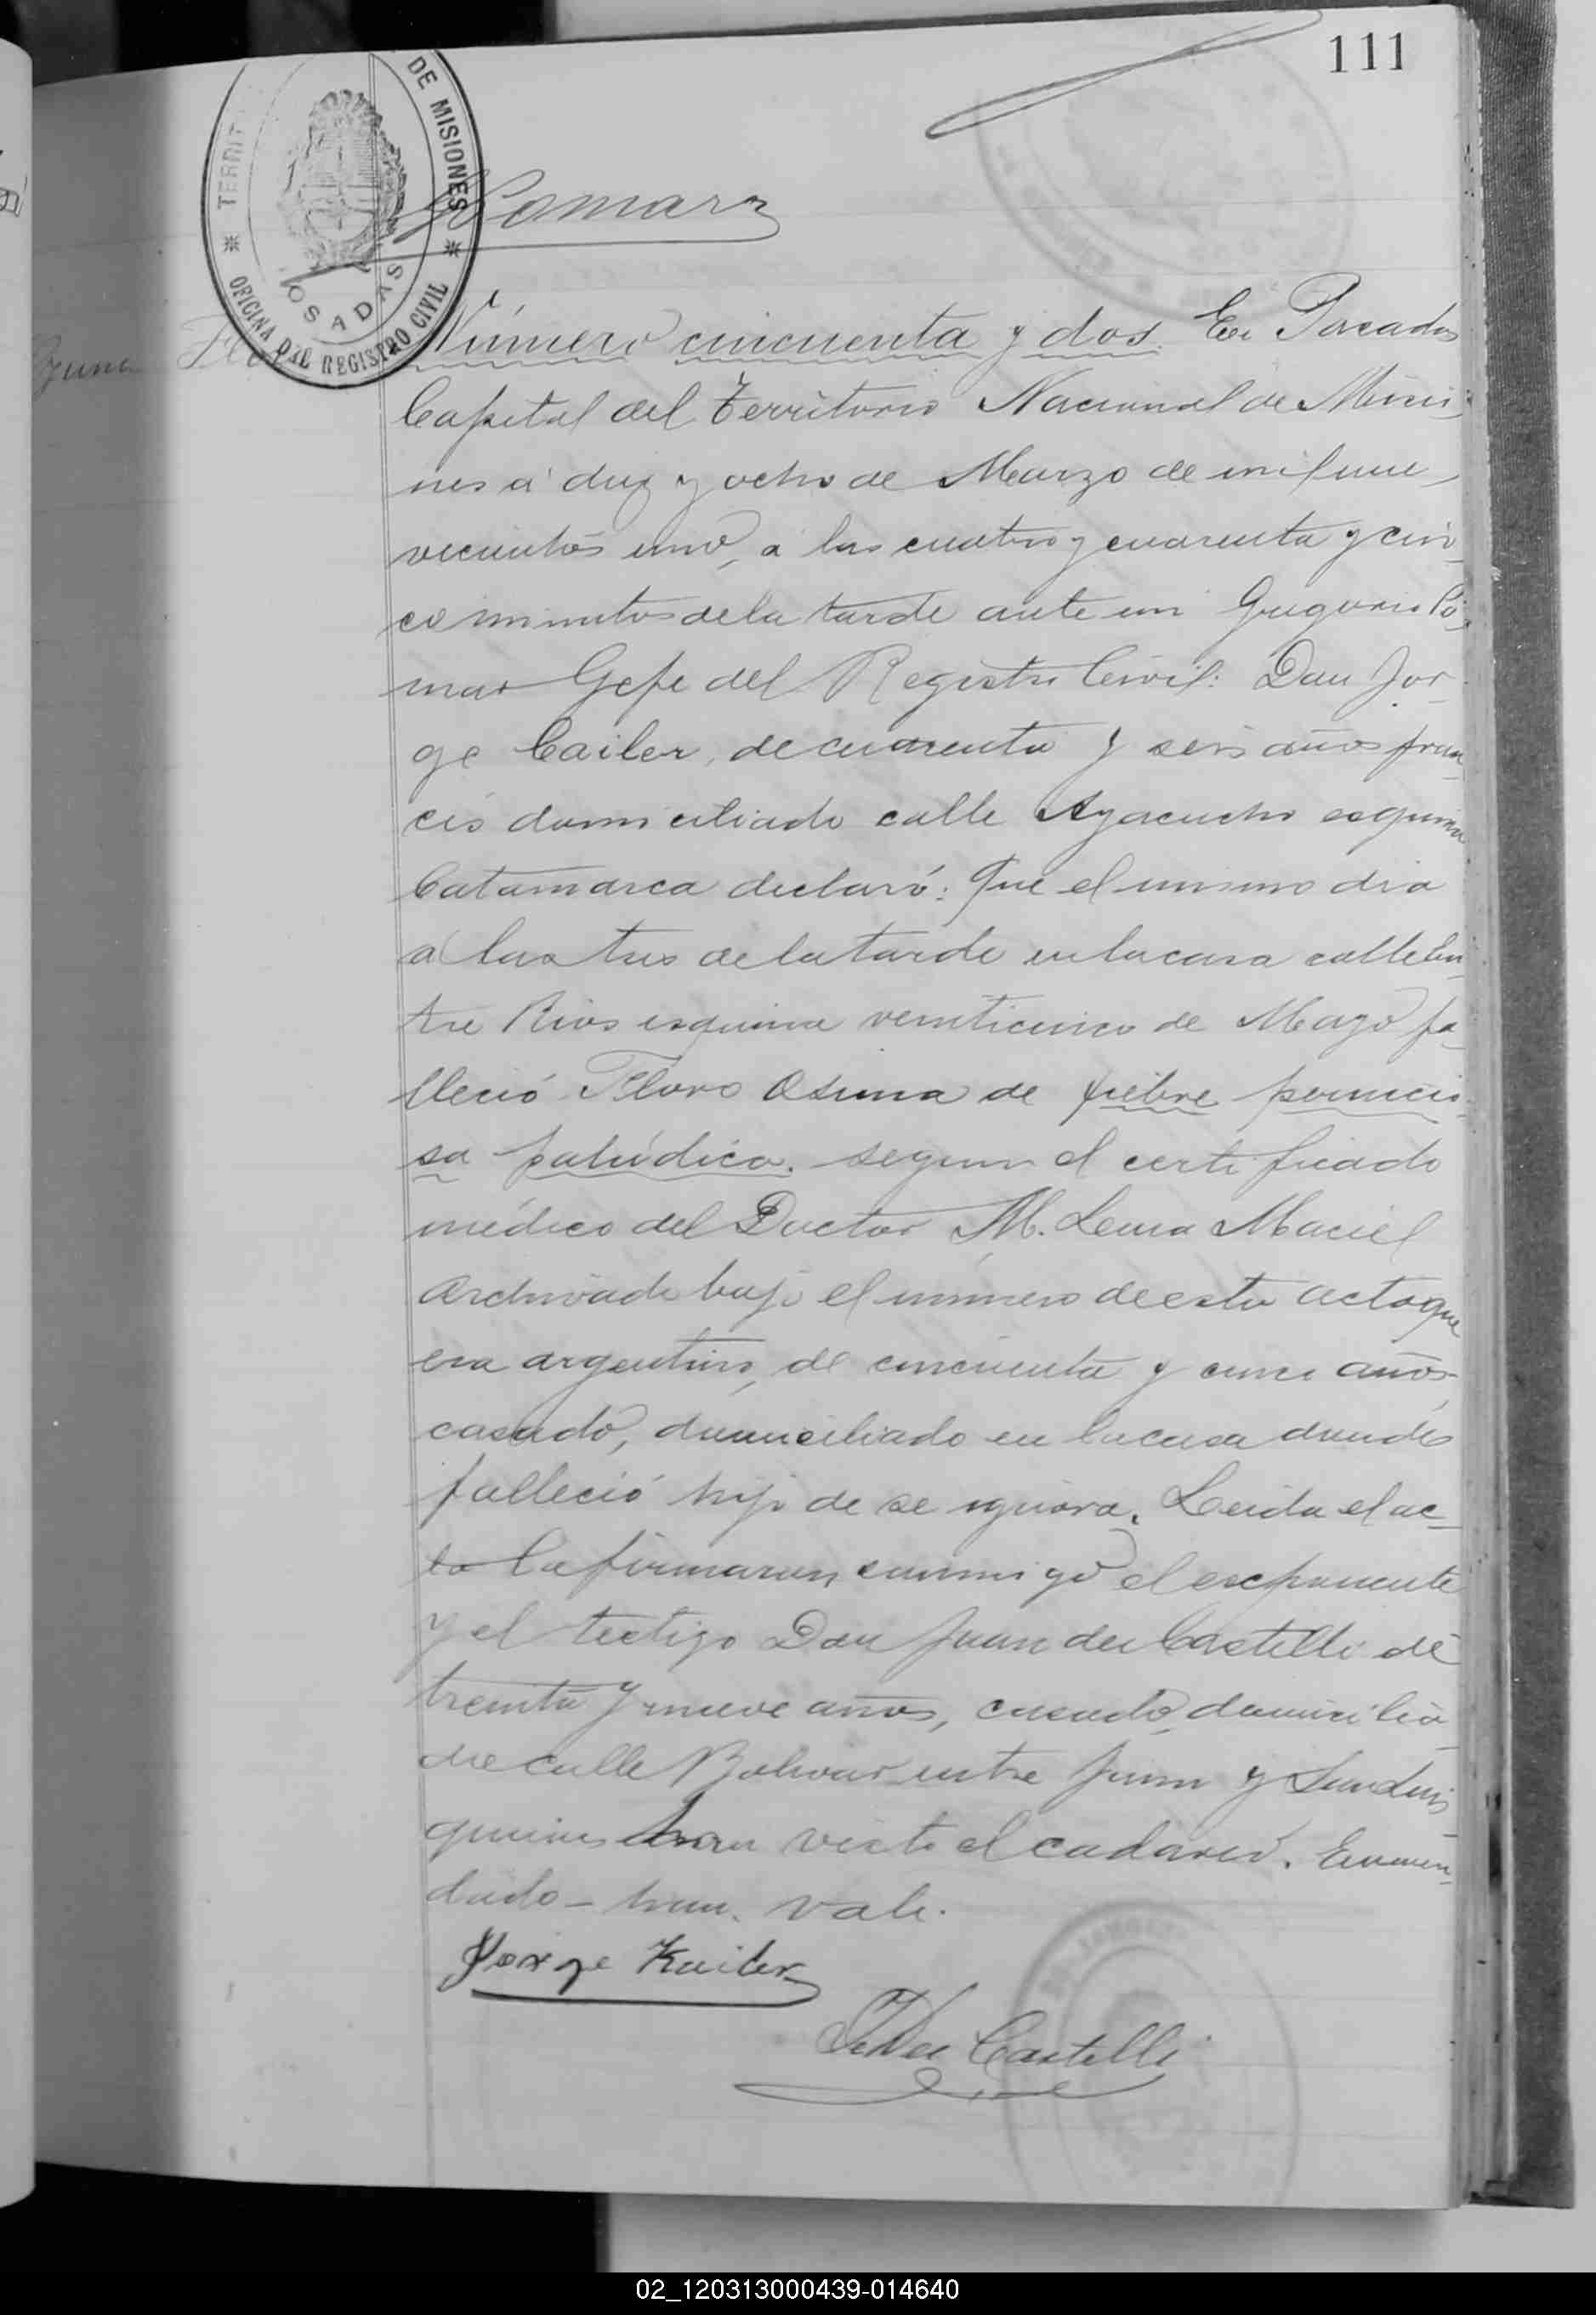 111
TERRIT DE MISIONES
POSADAS
OFICINA DEL REGISTRO CIVIL
GPomar
Número cincuenta y dos. En Posadas
Capital del Territorio Nacional de Misio-
nes á diez y ocho de Marzo de mil nue-
vecientos uno, a las cuatro y cuarenta y cin-
co minutos de la tarde ante mi Gregorio Pó-
mar Gefe del Registro Civil: Don Jor-
ge Cailer, de cuarenta y seis años fran-
cés domiciliado calle Ayacucho esquina
Catamarca declaró: Que el mismo dia
a las tres de la tarde en la casa calle En-
tre Rios esquina veinticinco de Mayo fa-
lleció Floro Osuna de fiebre pernicio-
sa palúdica. segun el certificado
médico del Doctor M. Lema Maciel
archivado bajo el número de esta acta que
era argentino, de cincuenta y cinco años
casado, domiciliado en la casa donde
falleció hijo de se ignora. Leida el ac-
ta la firmaron conmigo el exponente
y el testigo Don Juan del Castelli de
treinta y nueve años, casado, domicilia-
do calle Bolivar entre Junin y San Luis
quienes han visto el cadáver. Enmen-
dado - han. vale.
Jorge Kailer
J. Del Castelli
02_120313000439-014640